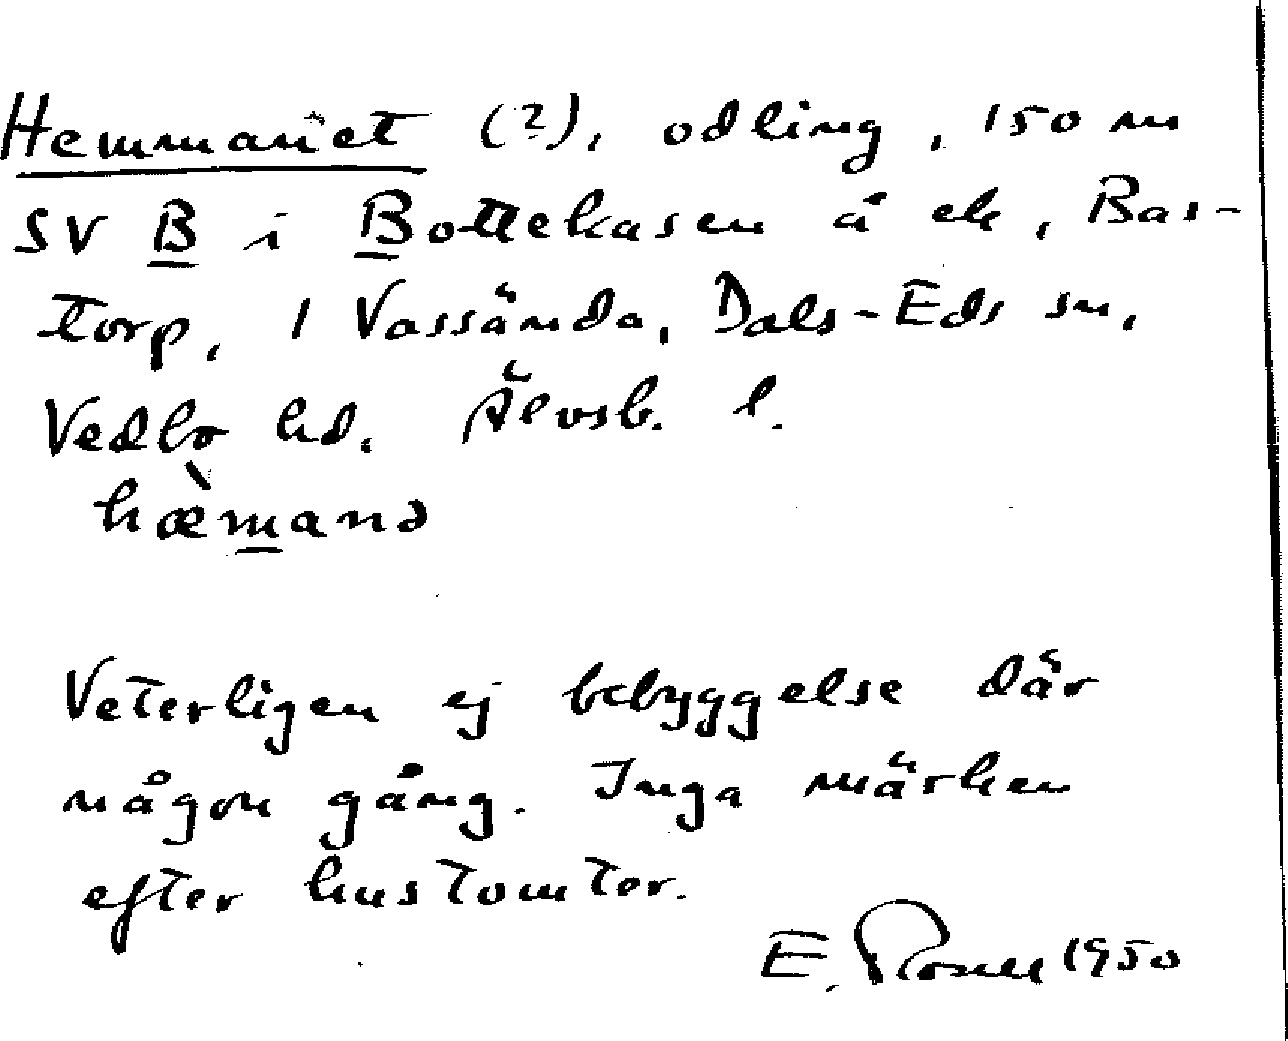 Hemmanet (?), odling, 150 m
SV B i Bottekasen å ek, Bas-
torp, 1 Vassända, Dals-Eds sn,
Vedbo hd. Älvsb. l.
hæ̀manə
Veterligen ej bebyggelse där
någon gång. Inga märken
efter hustomter.
E. 1950